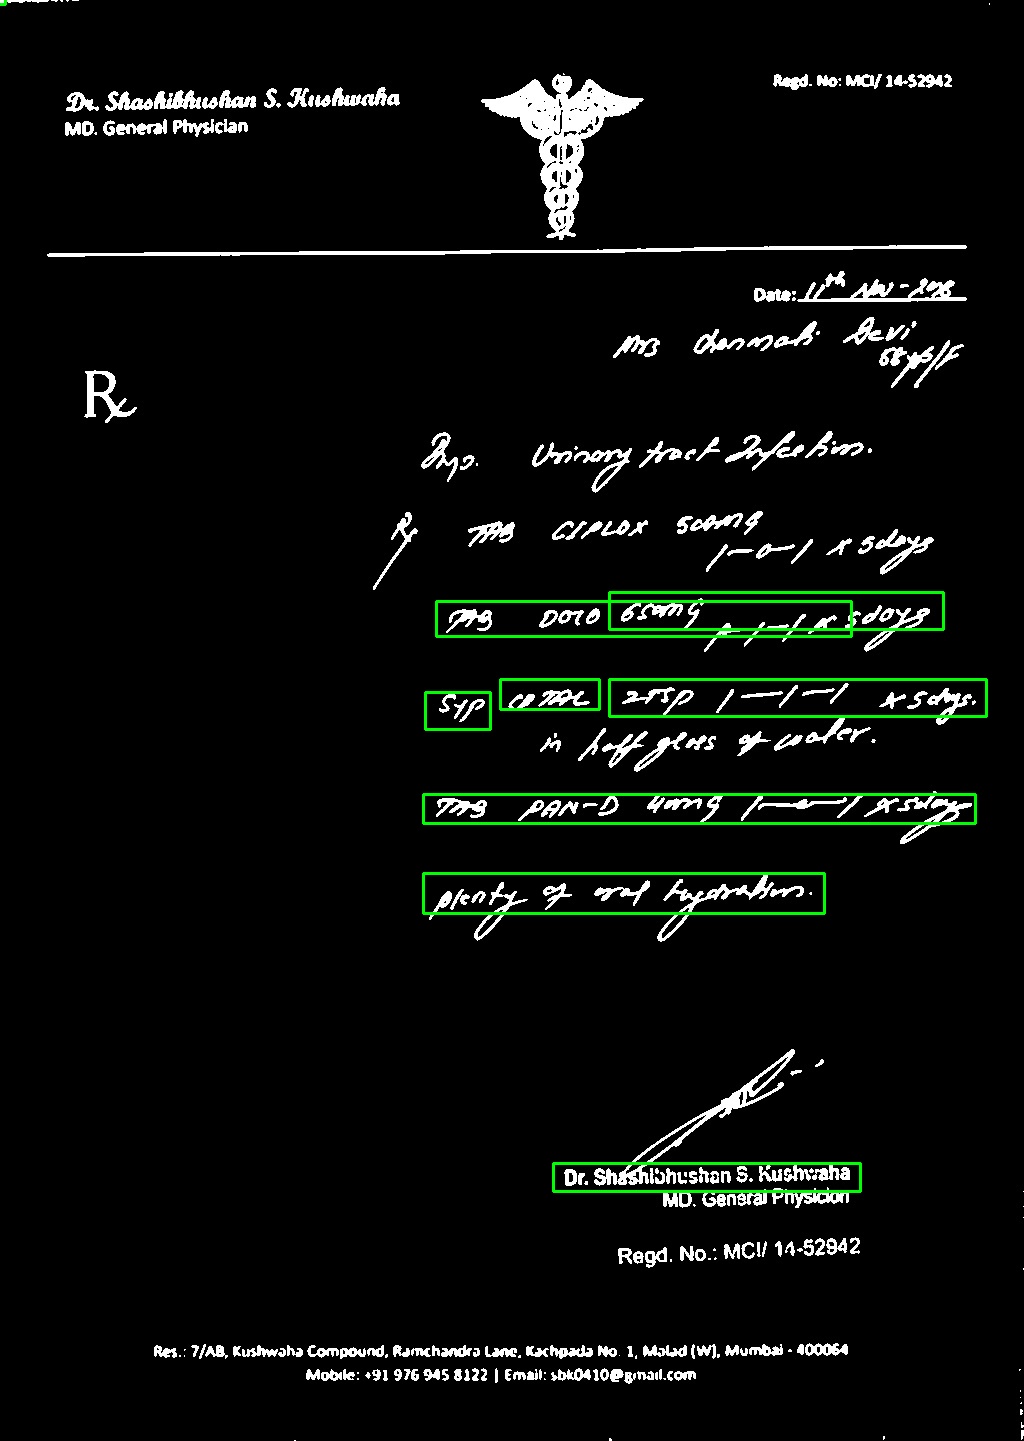 Dr. Shashibhushan S. Kushwaha
MD. General Physician
Regd. No: MCI/ 14-52942
Date: 11th Nov - 2018
Mrs Devi
68 yrs/F
Urinary tract Infection.
Rx
Rx TAB CIPLOX 500mg
1-0-1 x 5days
TAB DOLO 650mg
1-1-1 x 5days
SYP 2TSP 1-1-1 x 5days.
in half glass of water.
TAB PAN-D 40mg 1-0-1 x 5days
plenty of oral hydration.
Dr. Shashibhushan S. Kushwaha
MD. General Physician
Regd. No.: MCI/ 14-52942
Res.: 7/AB, Kushwaha Compound, Ramchandra Lane, Kachpada No. 1, Malad (W), Mumbai - 400064
Mobile: +91 976 945 8122 | Email: sbk0410@gmail.com